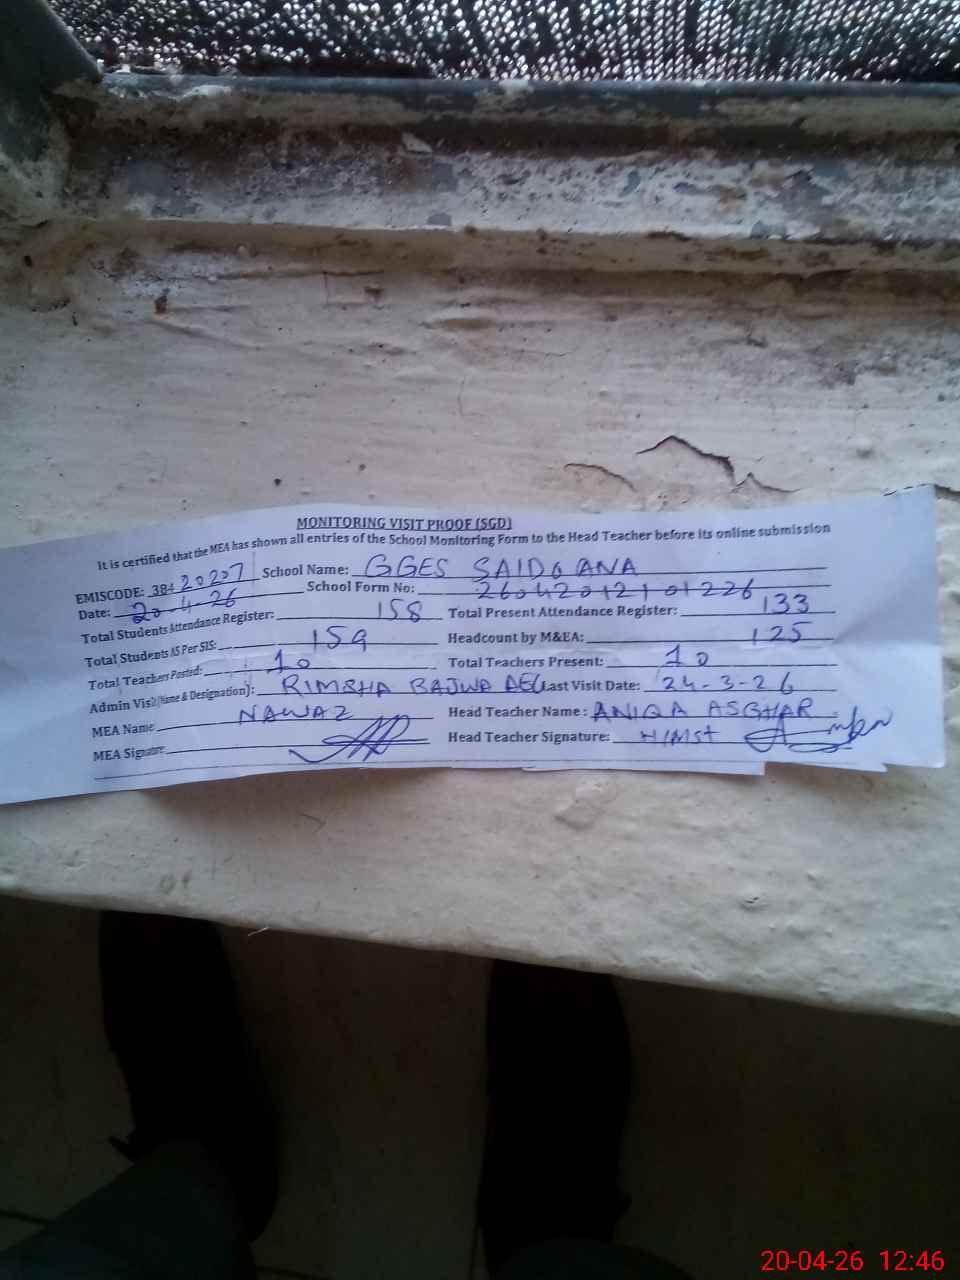 MONITORING VISIT PROOF (SGD)
It is certified that the MEA has shown all entries of the School Monitoring Form to the Head Teacher before its online submission
EMISCODE: 384 20207 School Name: GGES SAIDOANA
Date: 20-4-26 School Form No: 26042012101226
Total Students Attendance Register: 158 Total Present Attendance Register: 133
Total Students AS Per SIS: 159 Headcount by M&EA: 125
Total Teachers Posted: 10 Total Teachers Present: 10
Admin Visit (Name & Designation): RIMSHA BAJWA AEO Last Visit Date: 24-3-26
MEA Name: NAWAZ Head Teacher Name: ANIQA ASGHAR
MEA Signature: Head Teacher Signature:
20-04-26 12:46